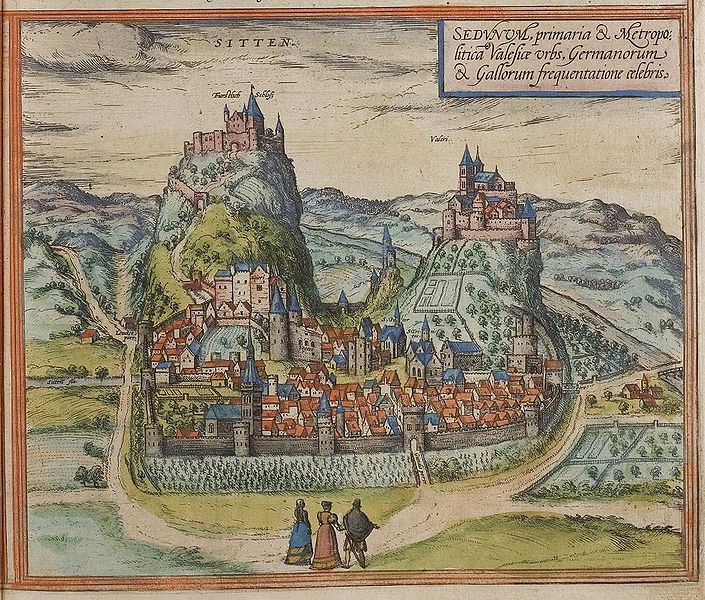 SITTEN.
SEDVNVM, primaria & Metropo:
liticā Valesiæ vrbs, Germanorum
& Gallorum frequentatione celebris.
Fürstlich Schloss
Valeri.